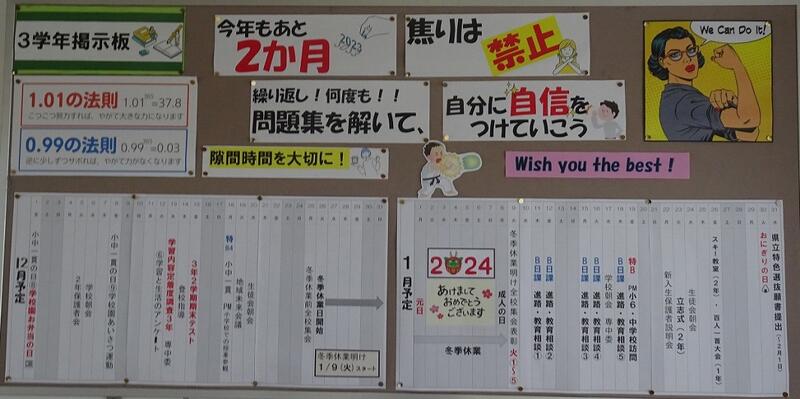 3学年掲示板
今年もあと
2か月
2023
焦りは
禁止
We Can Do It!
1.01の法則 1.01³⁶⁵=37.8
こつこつ努力すれば、やがて大きな力になります
0.99の法則 0.99³⁶⁵=0.03
逆に少しずつサボれば、やがて力がなくなります
繰り返し!何度も!!
問題集を解いて、
自分に自信を
つけていこう
隙間時間を大切に!
Wish you the best!
12月予定
小中一貫の日⑧学校園お弁当の日
学校朝会
2年保護者会
小中一貫の日⑨学校園あいさつ運動
⑥学習と生活のアンケート
学習内容定着度調査3年 専中委
登校指導
3年2学期期末テスト
特B4 小中一貫 PM小学校での授業参観
地域未来会議
生徒会朝会
冬季休業前全校集会
冬季休業日開始
冬季休業明け
1/9(火)スタート
1月予定
元日
2024
あけまして
おめでとう
ございます
成人の日
冬季休業
冬季休業明け全校集会表彰 火1~5
B日課 進路・教育相談①
B日課 進路・教育相談②
B日課 進路・教育相談③
B日課 進路・教育相談④
学校朝会 専中委
B日課 進路・教育相談⑤
特B PM小6・中学校訪問
新入生保護者説明会
立志式(2年)
生徒会朝会
スキー教室(2年)・百人一首大会(1年)
おにぎりの日
県立特色選抜願書提出(~2月1日)